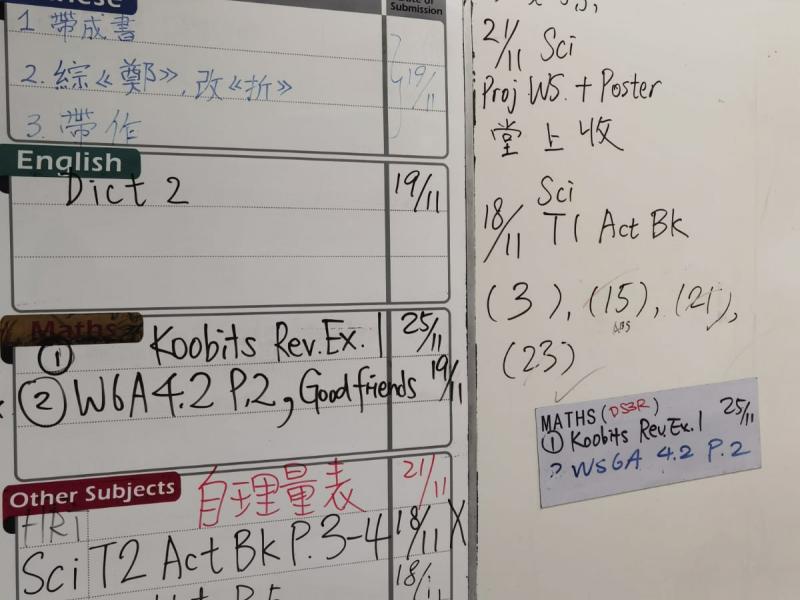 Submission
1 帶成書
2. 綜《鄭》, 改《折》 19/11
3. 帶作
English
Dict 2 19/11
Maths
① Koobits Rev.Ex. 1 25/11
② W6A 4.2 P.2, Good friends 19/11
Other Subjects 自理量表 21/11
Sci T2 Act Bk P. 3-4 18/11 X
21/11 Sci
Proj WS. + Poster
堂上收
Sci
18/11 T1 Act Bk
(3), (15), (21),
(23)
MATHS (DS3R)
① Koobits Rev.Ex. 1 25/11
? WS6A 4.2 P.2